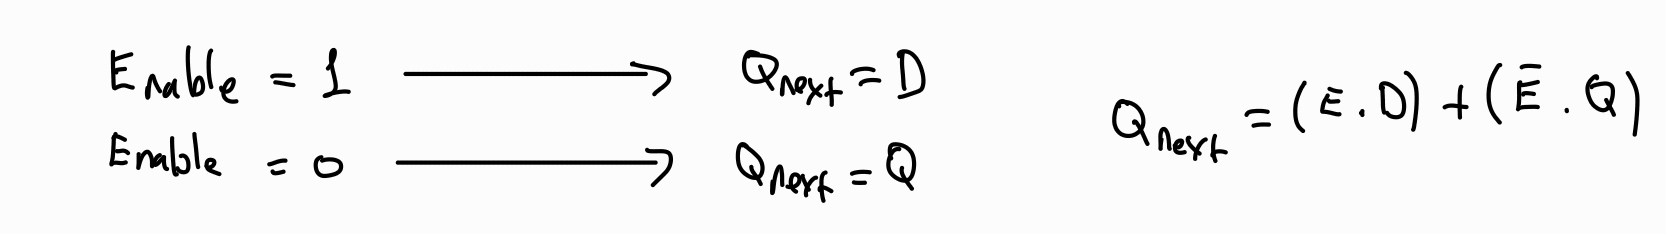 Enable = 1 ⟶ Qnext = D
Enable = 0 ⟶ Qnext = Q
Qnext = (E . D) + (E̅ . Q)